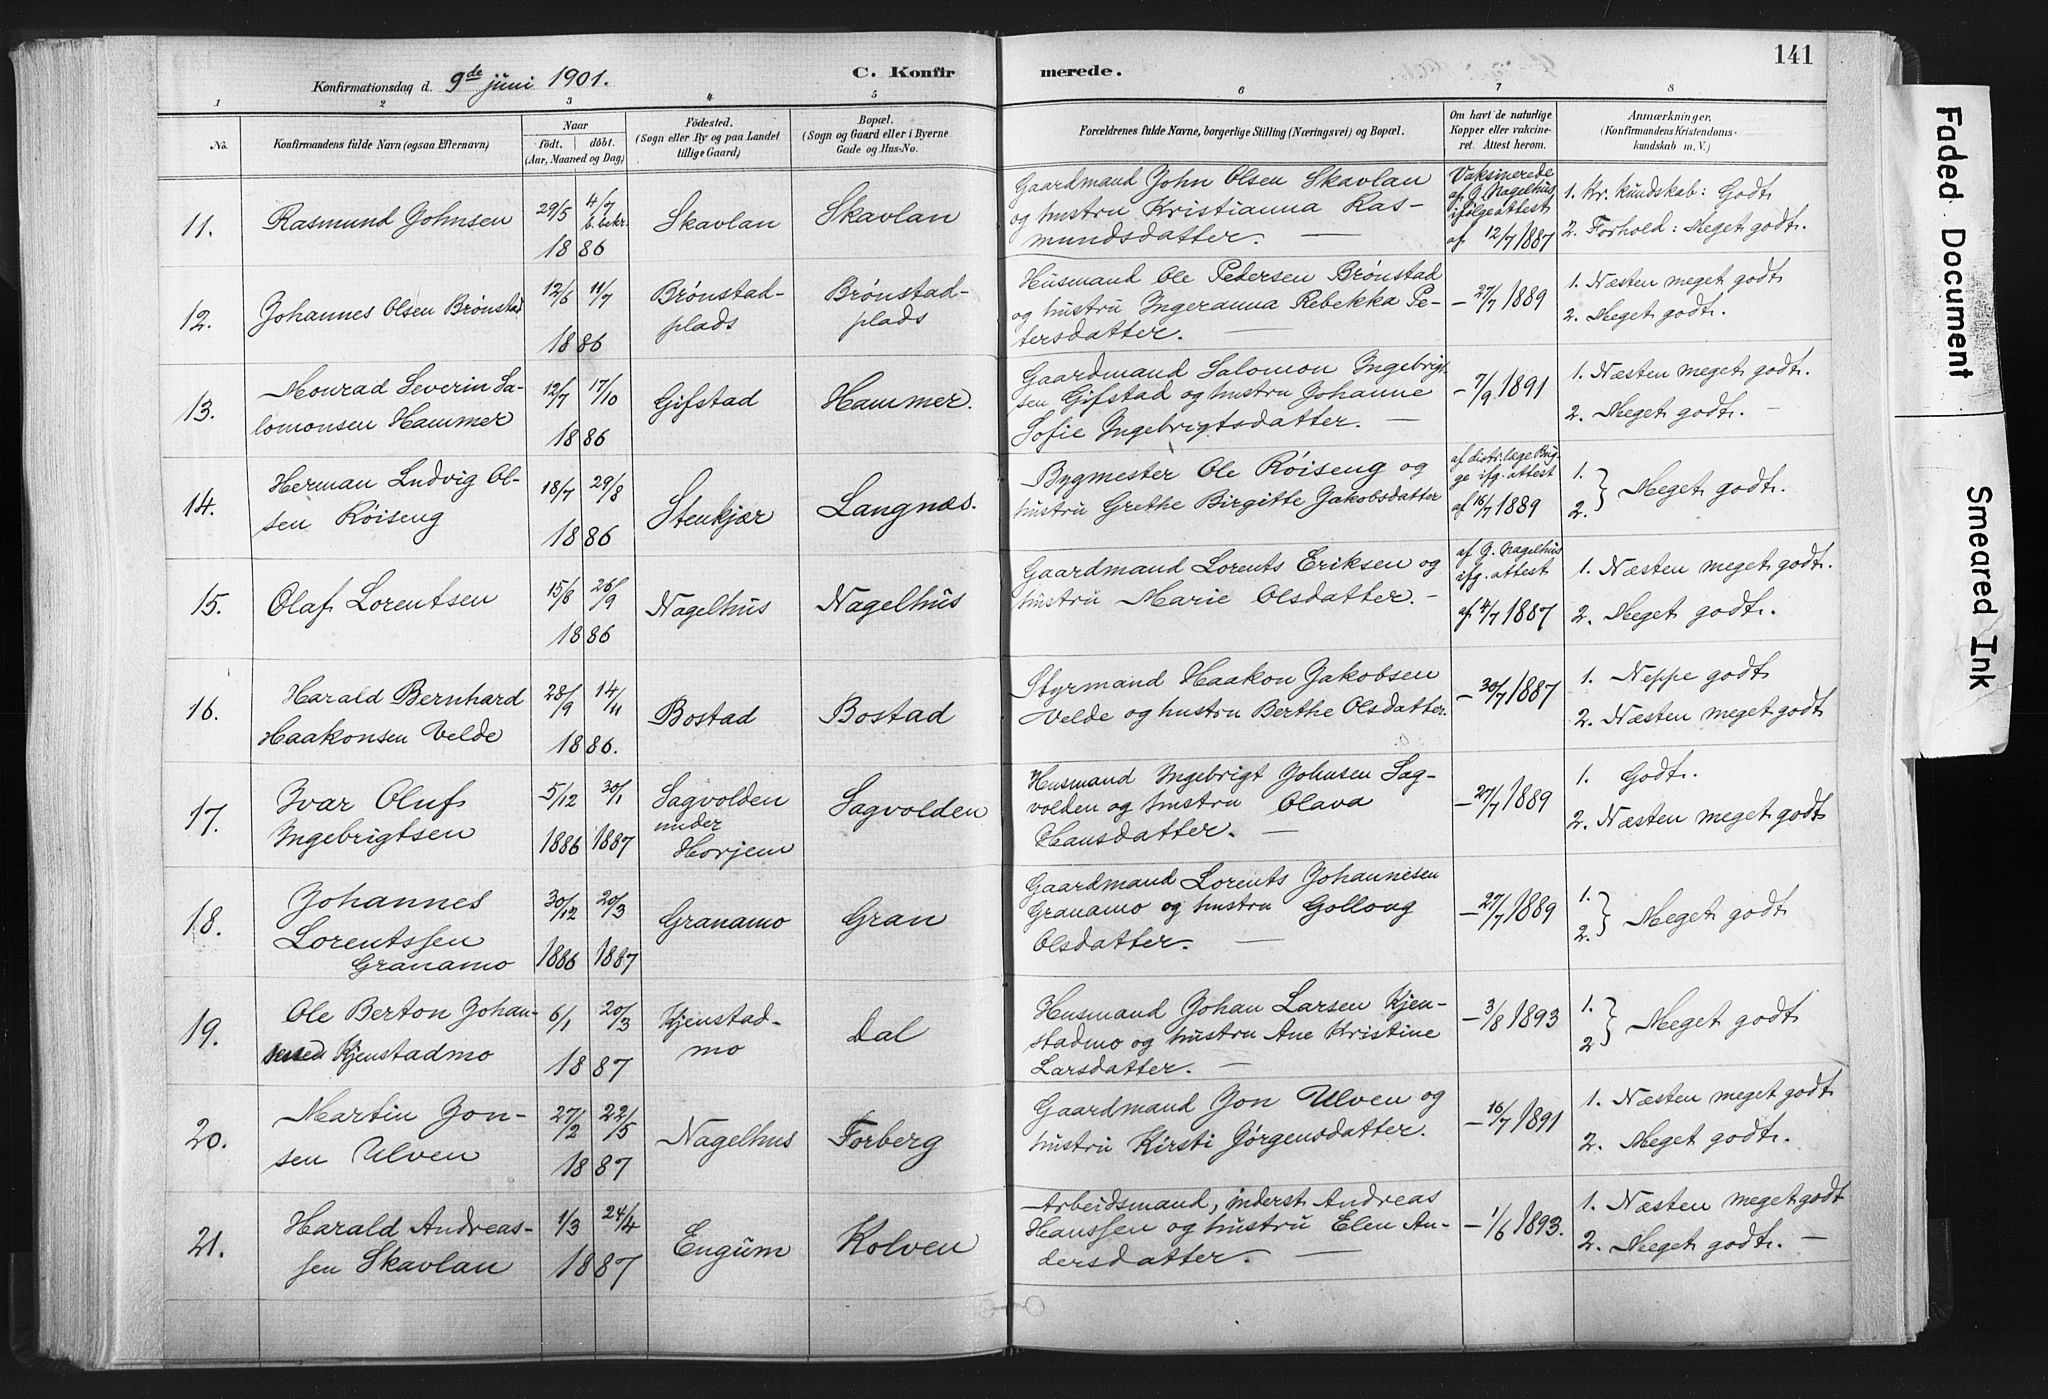 141
Konfirmationsdag d. 9de juni 1901. C. Konfirmerede.
1 2 3 4 5 6 7 8
No. Konfirmandens fulde Navn (ogsaa Efternavn)
Naar
født. døbt.
(Aar, Maaned og Dag)
Fødested.
(Sogn eller By og paa Landet
tillige Gaard)
Bopæl.
(Sogn og Gaard eller i Byerne
Gade og Hus-No.
Forældrenes fulde Navne, borgerlige Stilling (Næringsvei) og Bopæl.
Om havt de naturlige
Kopper eller vakcine-
ret. Attest herom.
Anmærkninger.
(Konfirmandens Kristendoms-
kundskab m. V.)
11. Rasmund Johnsen
29/5 4/7 b. bekr.
1886
Skavlan
Skavlan
Gaardmand John Olsen Skavlan
og hustru Kristianna Ras-
mundsdatter. —
Vaksinerede
af G. Nagelhus
ifølge attest
af 12/7 1887
1. Kr. kundskab: Godt.
2. Forhold: Meget godt.
12. Johannes Olsen Brønstad
12/6 11/7
1886
Brønstad-
plads
Brønstad-
plads
Husmand Ole Pedersen Brønstad
og hustru Ingeranna Rebekka Pe-
tersdatter. —
— 27/7 1889
1. Næsten meget godt
2. Meget godt.
13. Monrad Severin Sa-
lomonsen Hammer
12/7 17/10
1886
Gifstad
Hammer.
Gaardmand Salomon Ingebrigt-
sen Gifstad og hustru Johanne
Sofie Ingebrigtsdatter. —
— 7/9 1891
1. Næsten meget godt.
2. Meget godt. —
14. Herman Ludvig Ol-
sen Røiseng
18/7 29/8
1886
Stenkjær
Langnæs.
Bygmester Ole Røiseng og
hustru Grethe Birgitte Jakobsdatter
af distr. læge Brig-
ge ifg. attest
af 16/7 1889
1.
2. } Meget godt.
15. Olaf Lorentsen
15/8 26/9
1886
Nagelhus
Nagelhus
Gaardmand Lorents Eriksen og
hustru Marie Olsdatter. —
af G. Nagelhus
ifg. attest
af 4/7 1887
1. Næsten meget godt.
2. Meget godt.
16. Harald Bernhard
Haakonsen Velde
28/9 14/11
1886.
Bostad
Bostad
Styrmand Haakon Jakobsen
Velde og hustru Berthe Olsdatter.
— 30/7 1887
1. Neppe godt
2. Næsten meget godt
17. Ivar Oluf
Ingebrigtsen
5/12 30/1
1886 1887
Sagvolden
under
Horjem
Sagvolden
Husmand Ingebrigt Johnsen Sag-
volden og hustru Olava
Hansdatter. —
— 27/7 1889
1. Godt.
2. Næsten meget godt
18. Johannes
Lorentssen
Granamo
30/12 20/3
1886 1887
Granamo
Gran
Gaardmand Lorents Johannesen
Granamo og hustru Gollong
Olsdatter. —
— 27/7 1889
1.
2. } Meget godt
19. Ole Berton Johan-
nesen Kjenstadmo
6/1 20/3
1887
Kjenstad-
mo
Dal
Husmand Johan Larsen Kjen-
stadmo og hustru Ane Kristine
Larsdatter. —
— 3/8 1893
1.
2 } Meget godt
20. Martin Jon-
sen Ulven
27/2 22/5
1887
Nagelhus
Forberg
Gaardmand Jon Ulven og
hustru Kirsti Jørgensdatter.
— 16/7 1891
1. Næsten meget godt
2. Meget godt.
21. Harald Andreas-
sen Skavlan
1/3 24/4
1887
Engum
Kolven
Arbeidsmand, inderst Andreas
Hanssen og hustru Elen An-
dersdatter. —
— 1/6 1893.
1. Næsten meget godt
2. Meget godt. —
Faded Document
Smeared Ink